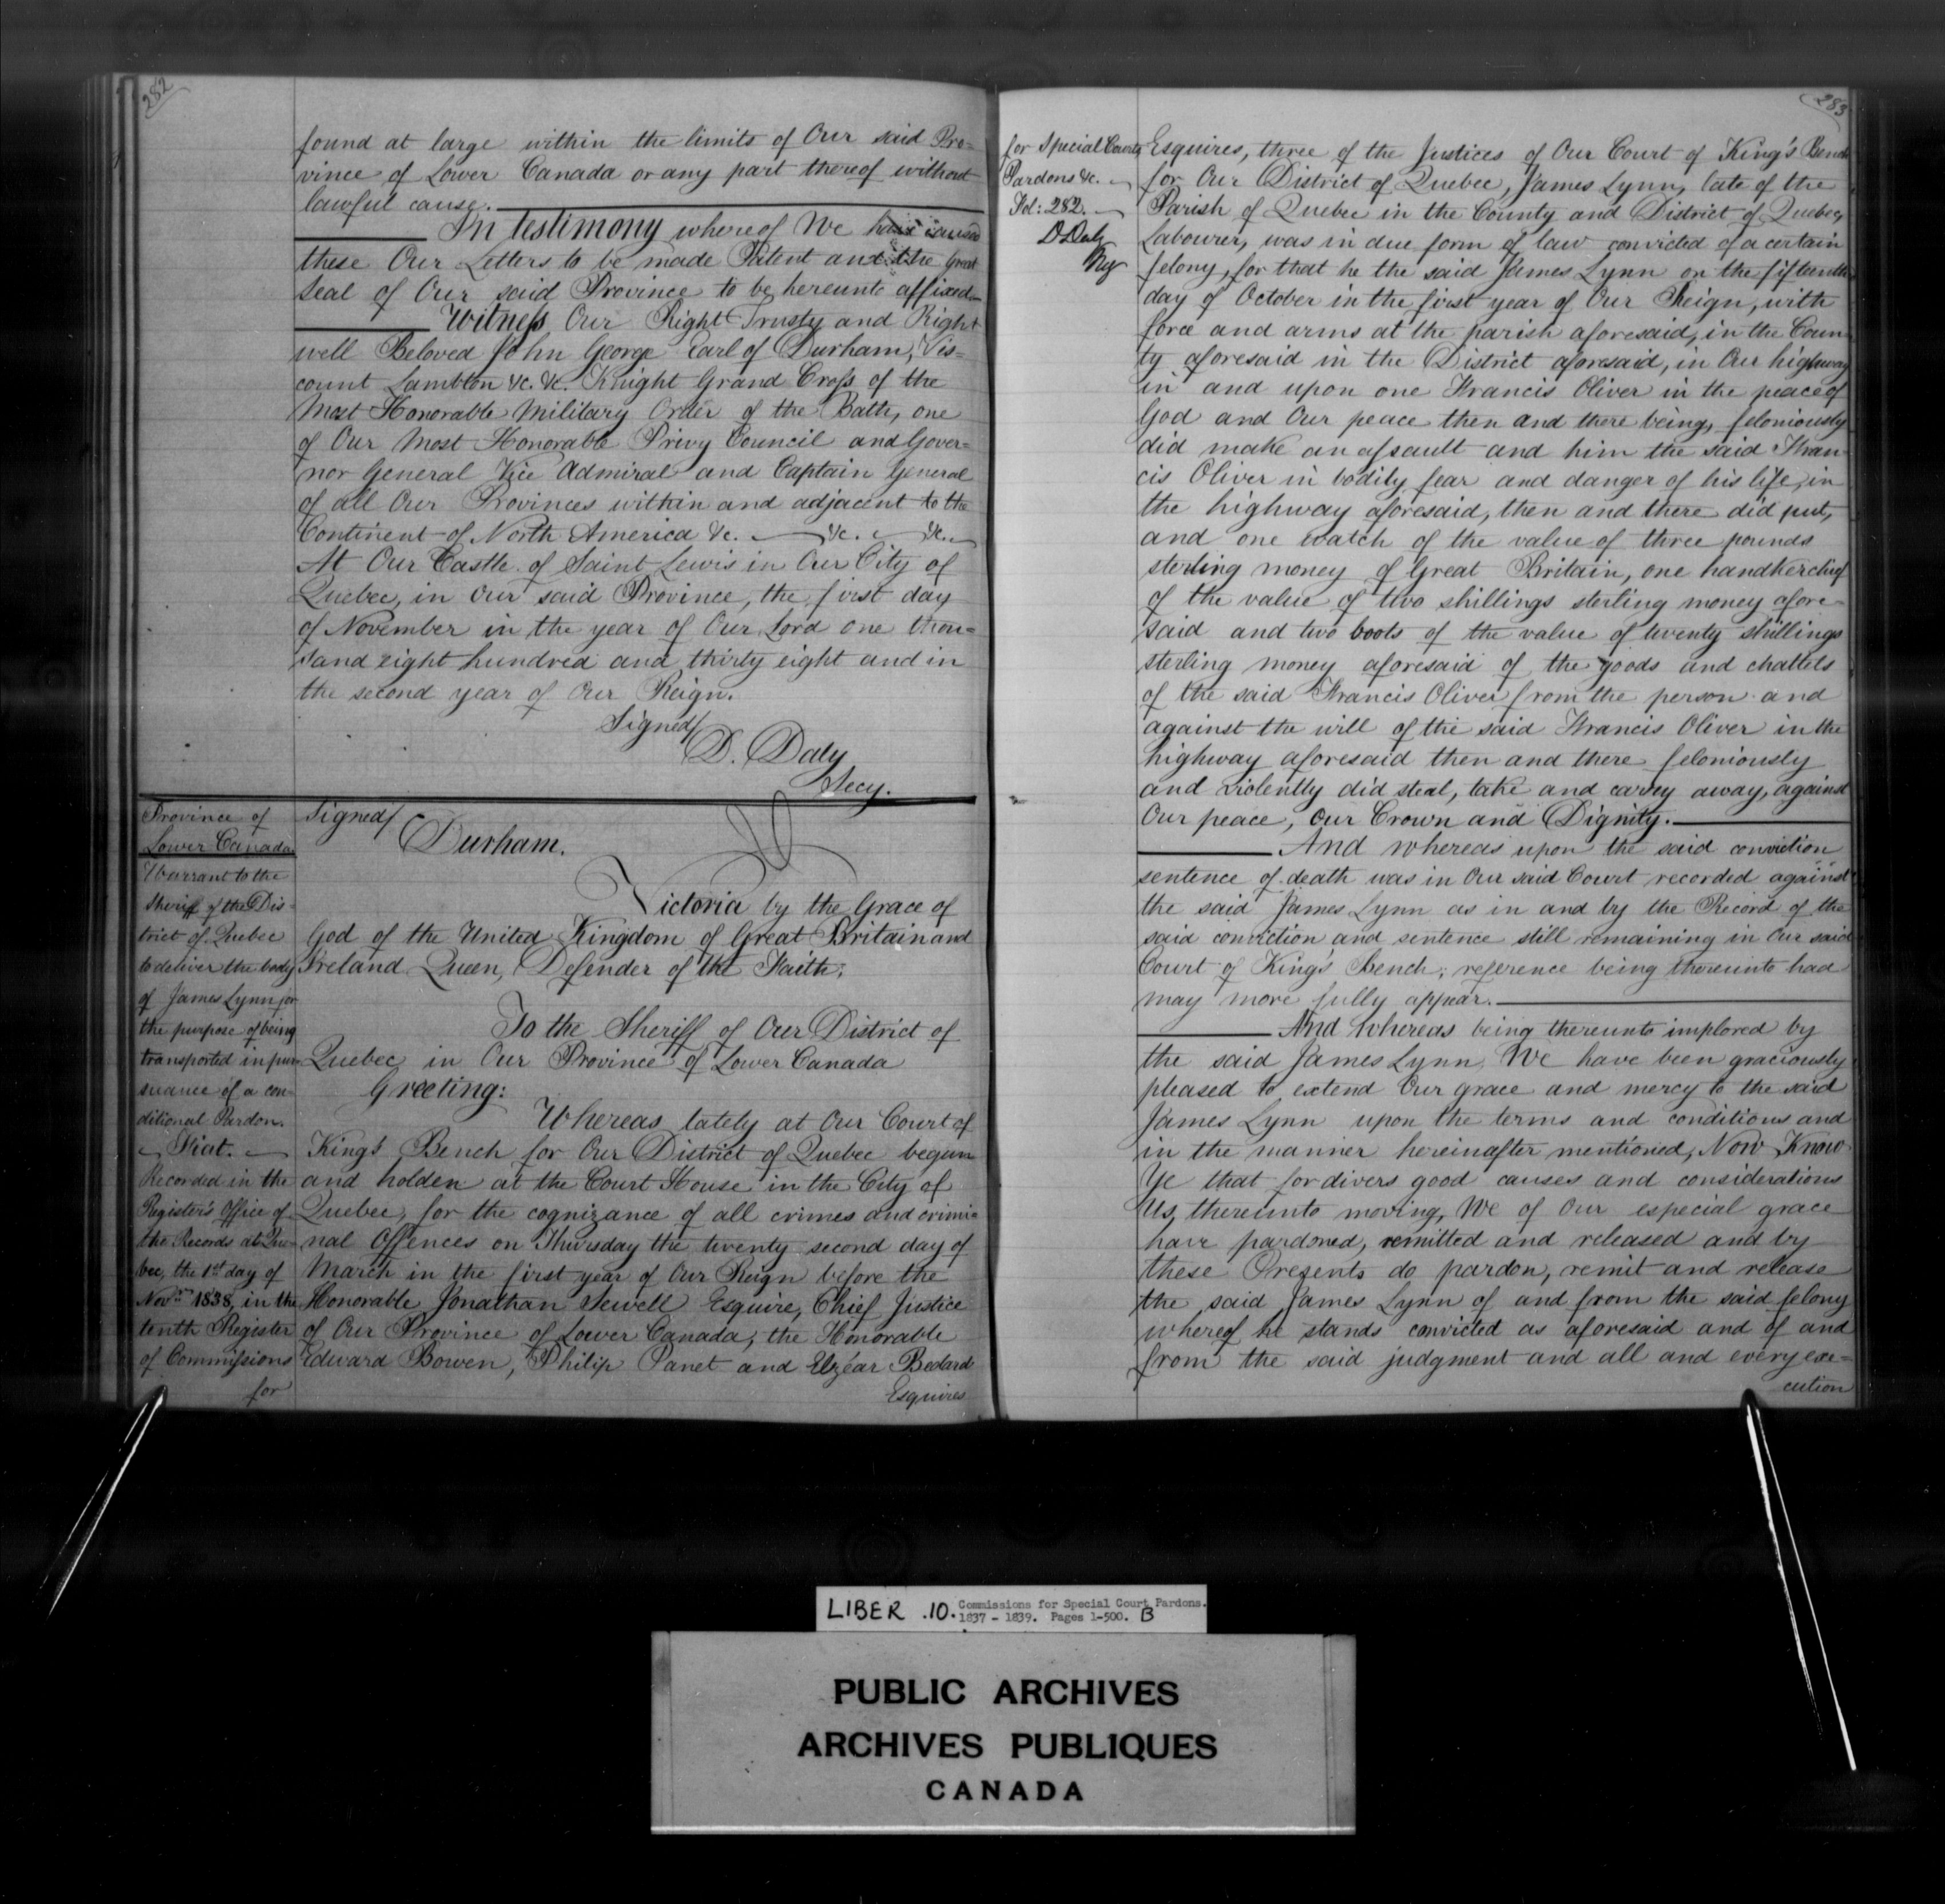 282
found at large within the limits of Our said Pro=
vince of Lower Canada or any part thereof without
lawful cause.
In testimony whereof We have caused
these Our Letters to be made Patent and the Great
Seal of Our said Province to be hereunto affixed.
Witness Our Right Trusty and Right
well Beloved John George Earl of Durham, Vis=
count Lambton &c. &c. Knight Grand Cross of the
Most Honorable Military Order of the Bath, one
of Our Most Honorable Privy Council and Gover=
nor General Vice Admiral and Captain General
of all Our Provinces within and adjacent to the
Continent of North America &c. &c. &c.
At Our Castle of Saint Lewis in Our City of
Quebec, in Our said Province, the first day
of November in the year of Our Lord one thou=
sand eight hundred and thirty eight and in
the second year of Our Reign.
Signed/
D. Daly
Secy.
Province of
Lower Canada
Warrant to the
Sheriff of the Dis=
trict of Quebec
to deliver the body
of James Lynn for
the purpose of being
transported in pur=
suance of a con=
ditional Pardon.
Fiat.
Recorded in the
Register's Office of
the Records at Que=
bec, the 1st day of
Novr. 1838, in the
tenth Register
of Commissions
for
Signed/
Durham.
Victoria by the Grace of
God of the United Kingdom of Great Britain and
Ireland Queen, Defender of the Faith.
To the Sheriff of Our District of
Quebec in Our Province of Lower Canada
Greeting:
Whereas lately at Our Court of
King's Bench for Our District of Quebec begun
and holden at the Court House in the City of
Quebec, for the cognizance of all crimes and crimi=
nal Offences on Thursday the twenty second day of
March in the first year of Our Reign before the
Honorable Jonathan Sewell Esquire, Chief Justice
of Our Province of Lower Canada, the Honorable
Edward Bowen, Philip Panet and Elzéar Bedard
Esquires
283
for Special Courts
Pardons &c.
Fol: 282.
D Daly
Reg
Esquires, three of the Justices of Our Court of King's Bench
for Our District of Quebec, James Lynn, late of the
Parish of Quebec in the County and District of Quebec,
Labourer, was in due form of law convicted of a certain
felony, for that he the said James Lynn on the fifteenth
day of October in the first year of Our Reign, with
force and arms at the parish aforesaid, in the Coun=
ty aforesaid in the District aforesaid, in Our highway
in and upon one Francis Oliver in the peace of
God and Our peace then and there being, feloniously
did make an assault and him the said Fran=
cis Oliver in bodily fear and danger of his life, in
the highway aforesaid, then and there did put,
and one watch of the value of three pounds
sterling money of Great Britain, one handkerchief
of the value of two shillings sterling money afore=
said and two boots of the value of twenty shillings
sterling money aforesaid of the goods and chattels
of the said Francis Oliver from the person and
against the will of the said Francis Oliver in the
highway aforesaid then and there feloniously
and violently did steal, take and carry away, against
Our peace, Our Crown and Dignity.
And whereas upon the said conviction
sentence of death was in Our said Court recorded against
the said James Lynn as in and by the Record of the
said conviction and sentence still remaining in Our said
Court of King's Bench, reference being thereunto had
may more fully appear.
And whereas being thereunto implored by
the said James Lynn We have been graciously
pleased to extend Our grace and mercy to the said
James Lynn upon the terms and conditions and
in the manner hereinafter mentioned, Now Know
Ye that for divers good causes and considerations
Us, thereunto moving, We of Our especial grace
have pardoned, remitted and released and by
these Presents do pardon, remit and release
the said James Lynn of and from the said felony
whereof he stands convicted as aforesaid and of and
from the said judgment and all and every exe=
cution
LIBER .10. Commissions for Special Court Pardons.
1837 - 1839. Pages 1-500. B
PUBLIC ARCHIVES
ARCHIVES PUBLIQUES
CANADA